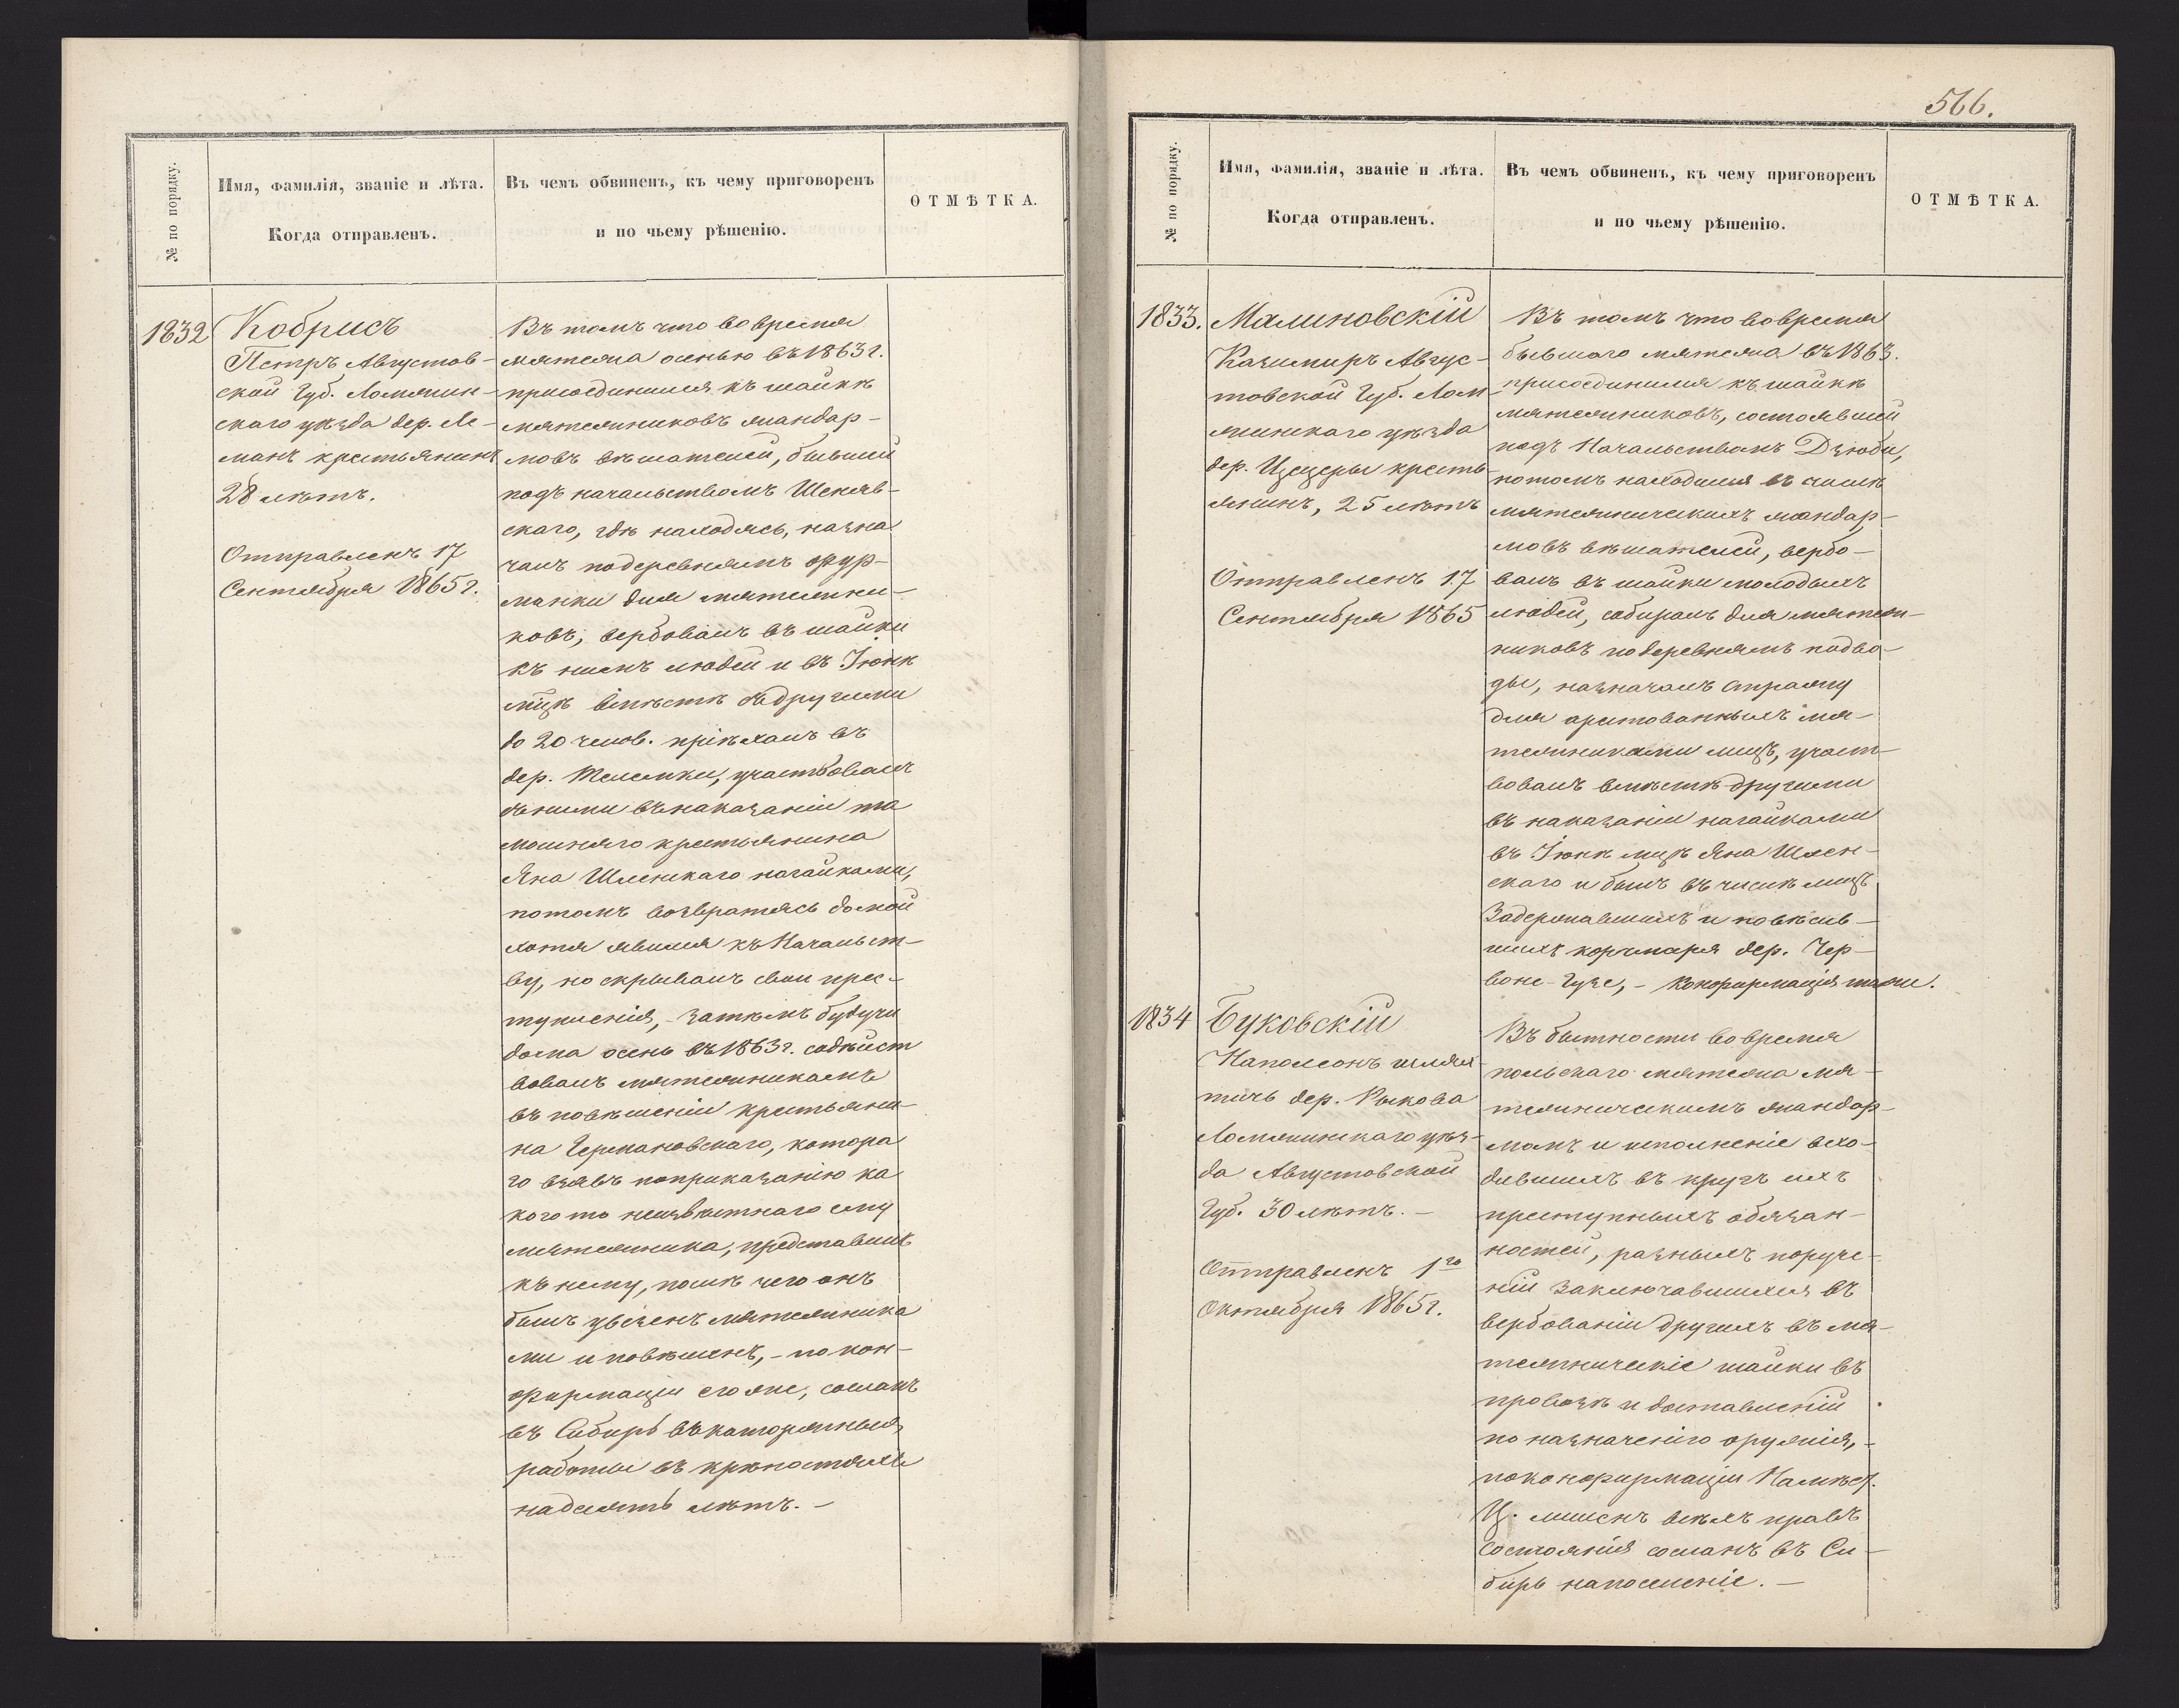 № по порядку.
Имя, Фамилія, званіе и лѣта.
Когда отправленъ.
Въ чемъ обвиненъ, къ чему приговоренъ
и по чьему рѣшенію.
ОТМѢТКА.
1832
Кобрисъ
Петръ Августов-
ской Губ. Ломжин-
скаго уѣзда дер. Ле-
манъ крестьянинъ
28 лѣтъ.
Отправленъ 17
Сентября 1865 г.
Въ томъ что во время
мятежа осенью въ 1863 г.
присоединился къ шайкѣ
мятежниковъ жандар-
мовъ вѣшателей, бывшей
подъ начальствомъ
скаго, гдѣ находясь, назна
чалъ по деревнямъ фур-
манки для мятежни-
ковъ, вербовалъ въ шайки
къ нимъ людей и въ Іюнѣ
м̃цѣ вмѣстѣ съ другими
до 20 челов. пріѣхалъ въ
дер. участвовалъ
съ ними въ наказаніи та
мошняго крестьянина
Яна Шленскаго нагайками,
потомъ возвратясь домой
хотя явился къ Начальст-
ву, но скрывалъ свои прес-
тупленія, - затѣмъ будучи
дома осень въ 1863 г. содѣйст
вовалъ мятежникамъ
въ повѣшеніи крестьяни-
на Германовскаго, котора
го взявъ по приказанію ка
кого то неизвѣстнаго ему
мятежника, представилъ
къ нему, послѣ чего онъ
былъ увезенъ мятежника
ми и повѣшенъ, - по кон-
фирмаціи его же, сосланъ
въ Сибирь въ каторжныя
работы въ крѣпостяхъ
на десять лѣтъ. -
566.
№ по порядку.
Имя, Фамилія, званіе и лѣта.
Когда отправленъ.
Въ чемъ обвиненъ, къ чему приговоренъ
и по чьему рѣшенію.
ОТМѢТКА.
1833.
Малиновскій
Казимиръ Авгус-
товской Губ. Лом-
жинскаго уѣзда
дер. Цецеры кресть
янинъ, 25 лѣтъ
Отправленъ 17
Сентября 1865
Въ томъ что во время
бывшаго мятежа въ 1863.
присоединился къ шайкѣ
мятежниковъ, состоявшей
подъ Начальствомъ Дзюбы,
потомъ находился въ числѣ
мятежническихъ жандар-
мовъ вѣшателей, вербо-
валъ въ шайки молодыхъ
людей, собиралъ для мятеж-
никовъ по деревнямъ подво-
ды, назначалъ стражу
для арестованныхъ мя-
тежниками лицъ, участ-
вовалъ вмѣстѣ другими
въ наказаніи нагайками
въ Іюнѣ мцѣ Яна Шлен-
скаго и былъ въ числѣ лицъ
задержавшихъ и повѣсив-
шихъ корчмаря дер. Чер-
воне-Гузе, - конфирмація таже.
1834
Буковскій
Наполеонъ шлях
тичъ дер. Рыкова
Ломжинскаго уѣз-
да Августовской
Губ. 30 лѣтъ. -
Отправленъ 1го
Октября 1865 г.
Въ бытности во время
польскаго мятежа мя-
тежническимъ жандар-
момъ и исполненіе вхо-
дившихъ въ кругъ ихъ
преступныхъ обязан-
ностей, разныхъ поруче-
ній заключавшихся въ
вербованіи другихъ въ мя-
тежническіе шайки въ
провозѣ и доставленіи
по назначенію оружія, -
по конфирмаціи Намѣст.
Ц. лишенъ всѣхъ правъ
состоянія сосланъ въ Си-
бирь на поселеніе. -